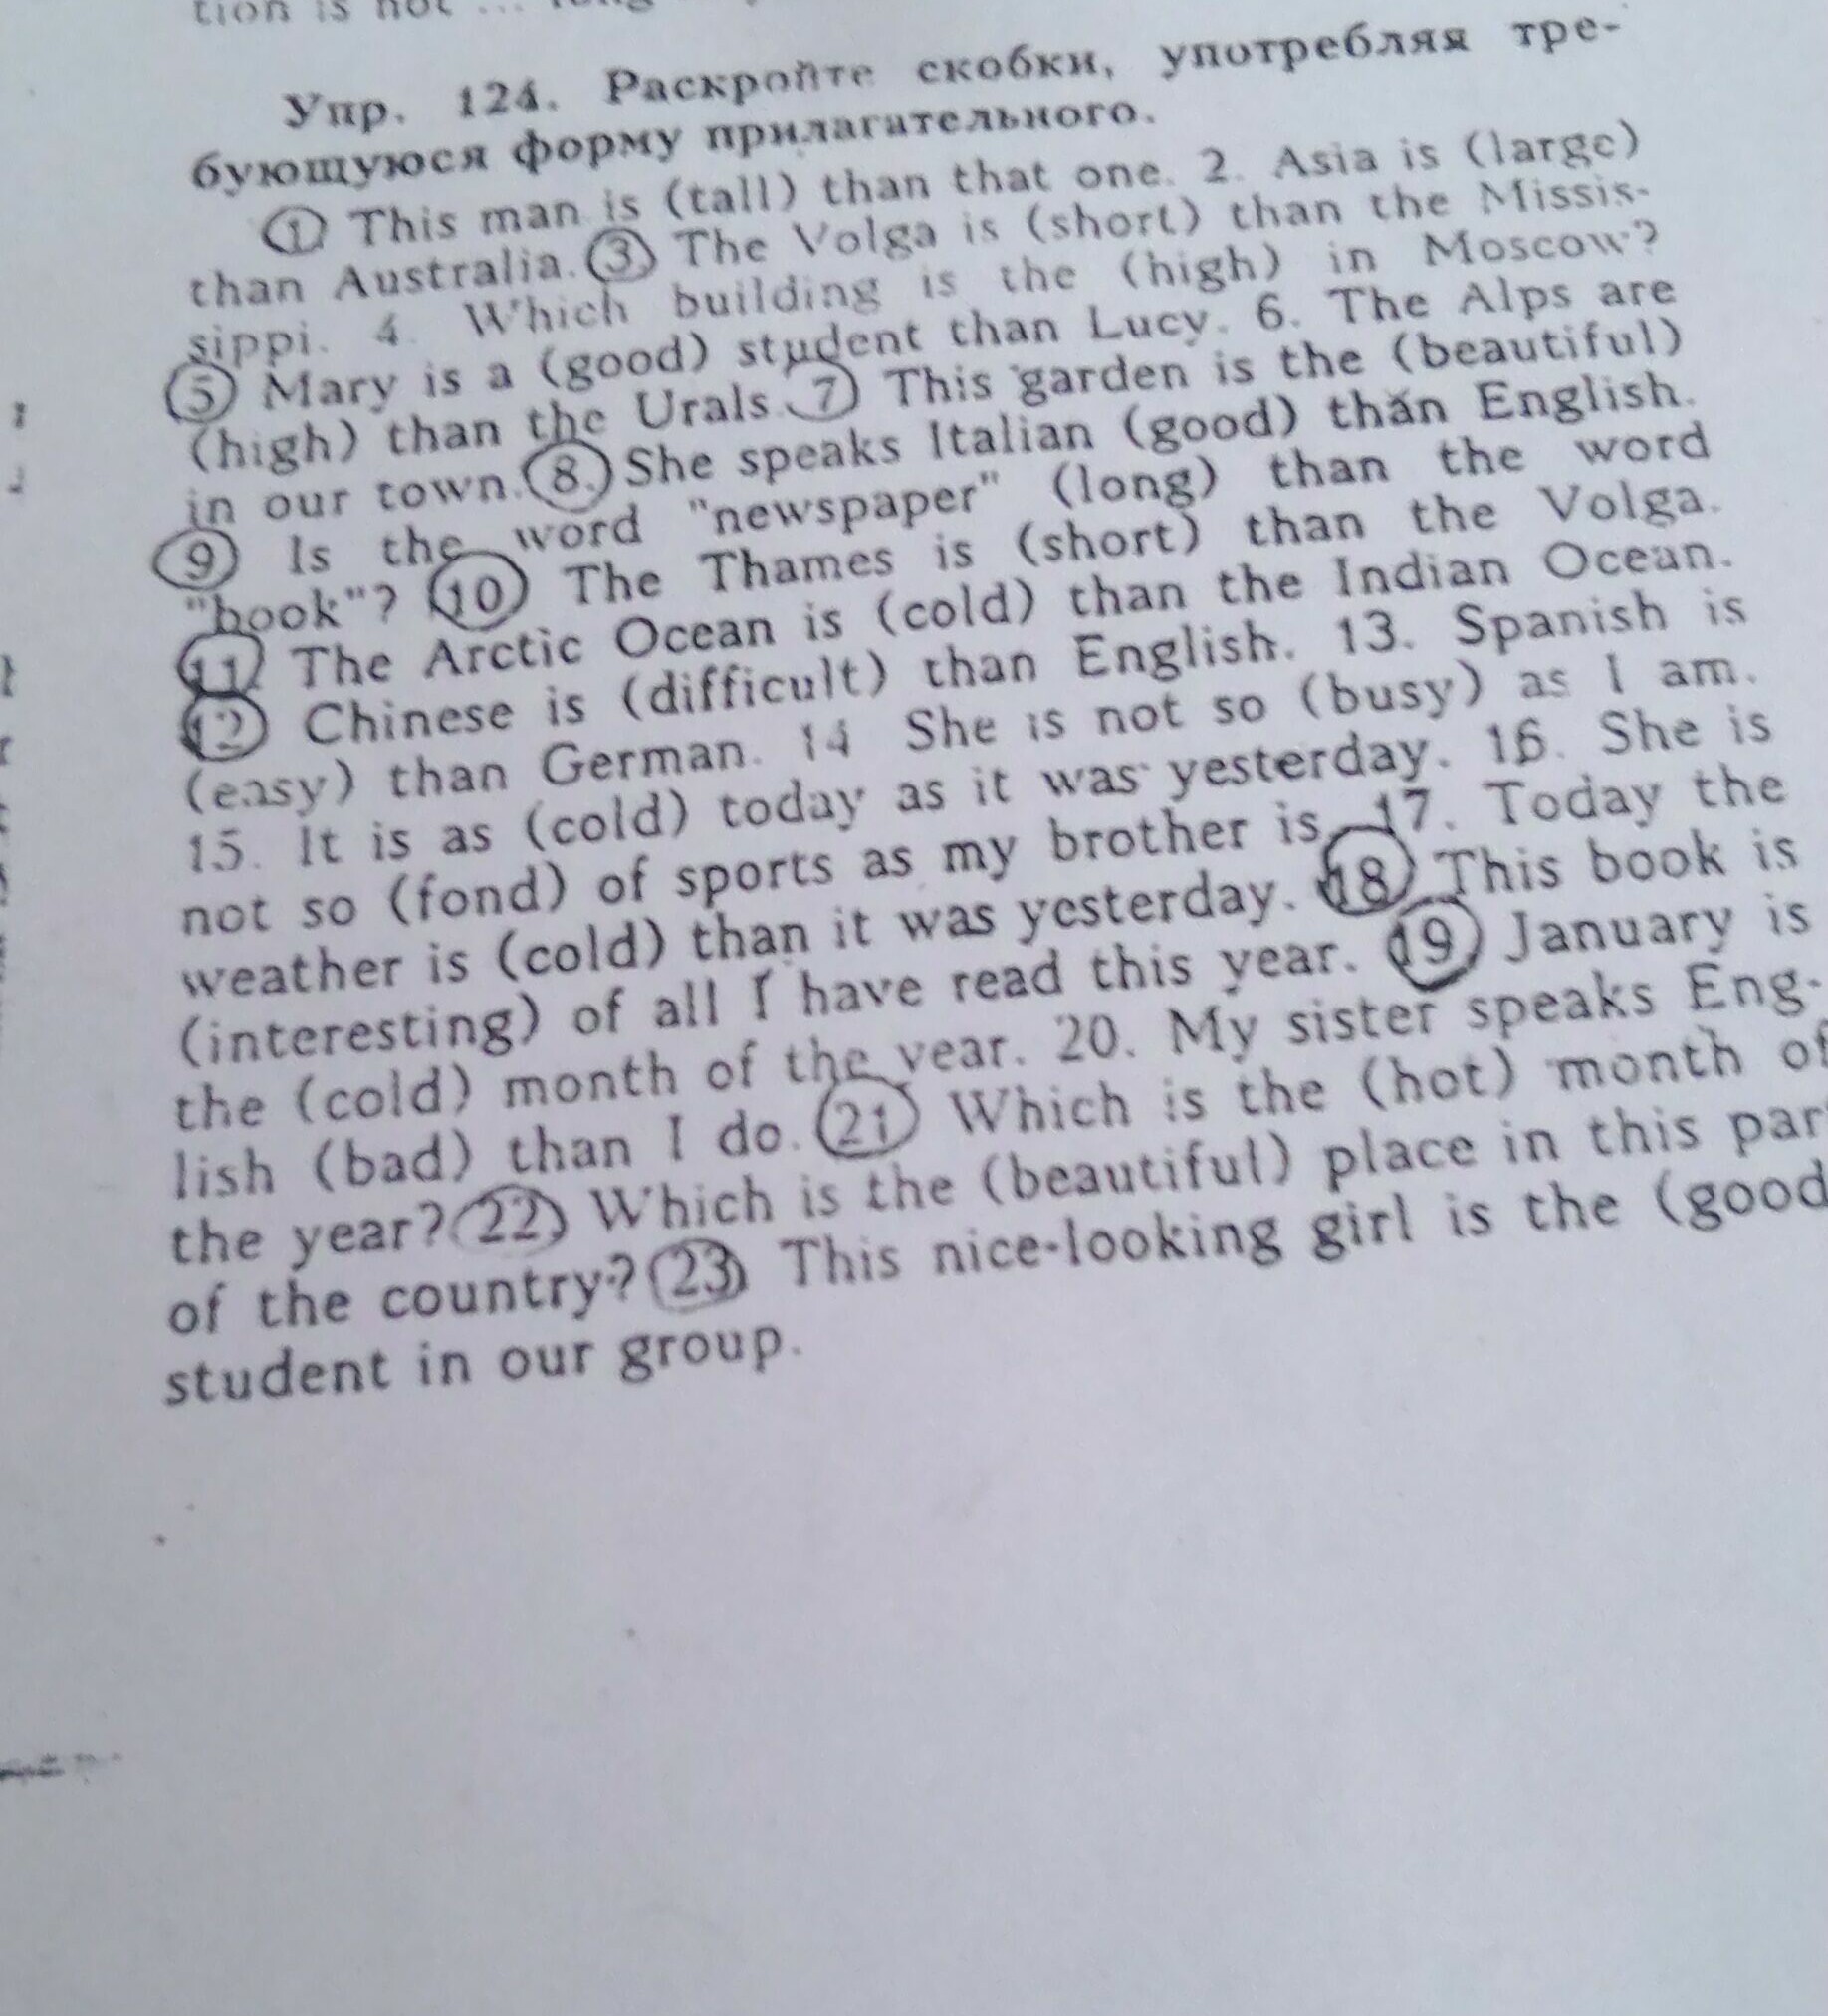 tion is not ...
Упр. 124. Раскройте скобки, употребляя тре-
бующуюся форму прилагательного.
1 This man is (tall) than that one. 2. Asia is (large)
than Australia. 3. The Volga is (short) than the Missis-
sippi. 4. Which building is the (high) in Moscow?
5 Mary is a (good) student than Lucy. 6. The Alps are
(high) than the Urals 7 This garden is the (beautiful)
in our town. 8. She speaks Italian (good) than English.
9 Is the word "newspaper" (long) than the word
"book"? 10 The Thames is (short) than the Volga.
11 The Arctic Ocean is (cold) than the Indian Ocean.
12 Chinese is (difficult) than English. 13. Spanish is
(easy) than German. 14 She is not so (busy) as I am.
15. It is as (cold) today as it was yesterday. 16. She is
not so (fond) of sports as my brother is. 17. Today the
weather is (cold) than it was yesterday. 18 This book is
(interesting) of all I have read this year. 19 January is
the (cold) month of the year. 20. My sister speaks Eng-
lish (bad) than I do. 21 Which is the (hot) month of
the year? 22 Which is the (beautiful) place in this par
of the country? 23 This nice-looking girl is the (good
student in our group.